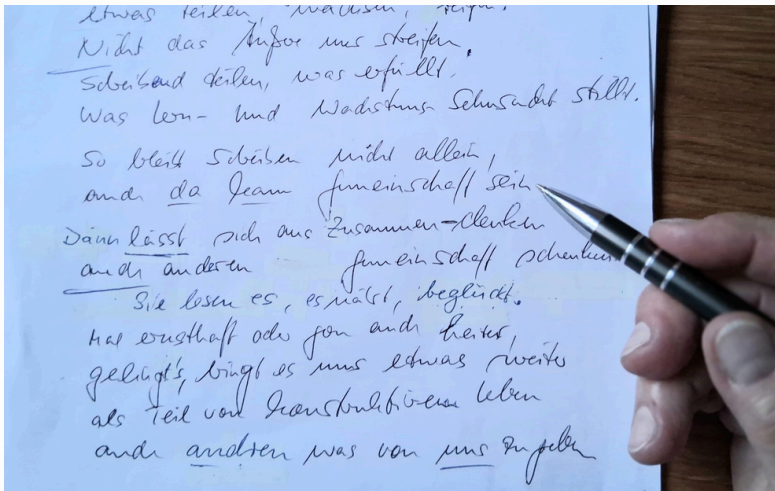 etwas teilen, wachsen, reifen.
Nicht das Äußre nur streifen,
Schreibend teilen, was erfüllt.
Was Lern- und Wachstums-Sehnsucht stillt.
So bleibt Schreiben nicht allein,
auch da kann Gemeinschaft sein
Dann lässt sich aus Zusammen-denken
auch anderen Gemeinschaft schenken
Sie lesen es, es nützt, beglückt.
Mal ernsthaft oder gar auch heiter,
gelingt's, bringt es uns etwas weiter
als Teil von konstruktivem Leben
auch andren was von uns zu geben